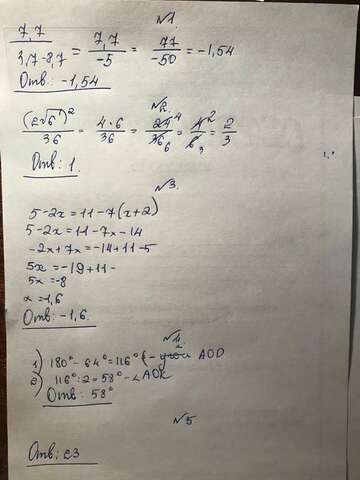 №1
7,7 / 3,7-8,7 = 7,7 / -5 = 77 / -50 = -1,54
Отв: -1,54
№2
(2√6)² / 36 = 4·6 / 36 = 24 4 / 36 6 = 4 2 / 6 3 = 2 / 3
Отв: 1.
№3
5-2x=11-7(x+2)
5-2x=11-7x-14
-2x+7x=-14+11-5
5x=-19+11-
5x=-8
x=-1,6
Отв: -1,6.
№4
1) 180°-64°=116° - угол AOD
2) 116°:2=58° - ∠AOK
Отв: 58°
№5
Отв: 23